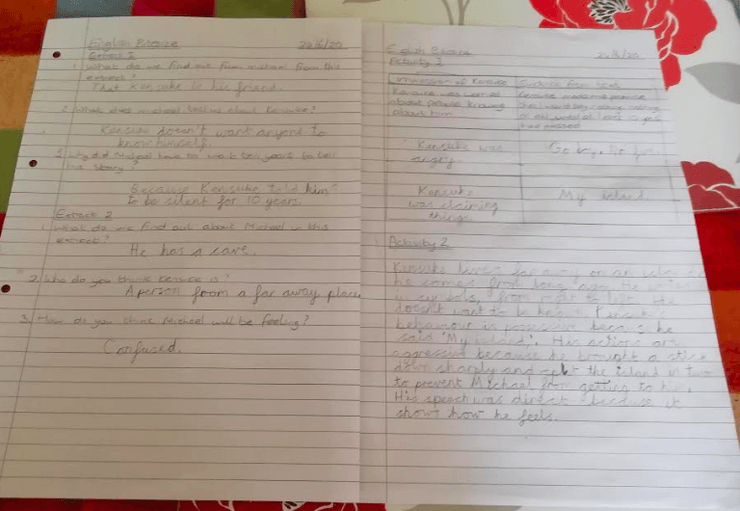 English
22/6/20
Extract 1
1. What do we find out from michael from this
extract?
That Kensuke is his friend.
2. What does michael tell us about Kensuke?
Kensuke doesn't want anyone to
know himself.
3. Why did Michael have to wait ten years to tell
his story?
Because Kensuke told him
to be silent for 10 years.
Extract 2
1. What do we find out about Michael in this
extract?
He has a cave.
2. Who do you think Kensuke is?
A person from a far away place
3. How do you think Michael will be feeling?
Confused.
English
22/6/20
Activity 1
Impression of Kensuke
Evidence from text
Kensuke was worried
about people knowing
about him
Kensuke made me promise
that I would say nothing
until at least 10 years
had passed
Kensuke was
angry
Kensuke
was claiming
things
My island
Activity 2
Kensuke lives far away on an
he comes from long ago. He
from right to left. He
doesn't want to be known.
behaviour is because he
said 'My Island'. His actions are
aggressive because he brought a stick
down sharply and the island in two
to prevent Michael from getting to him.
His speech was direct because it
shows how he feels.